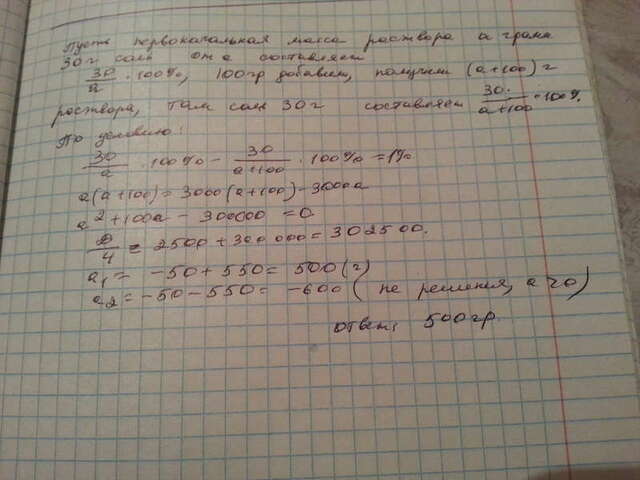 Пусть первоначальная масса раствора a грамм
30 г соль она составляет
30/a · 100%, 100гр добавим, получим (a+100) г
раствора, там соль 30 г составляет 30/(a+100) · 100%.
По условию:
30/a · 100% − 30/(a+100) · 100% = 1%
a(a+100) = 3000(a+100) − 3000a
a² + 100a − 300000 = 0
D/4 = 2500 + 300000 = 302500.
a₁ = −50 + 550 = 500 (г)
a₂ = −50 − 550 = −600 ( не решения, a > 0)
ответ: 500гр.